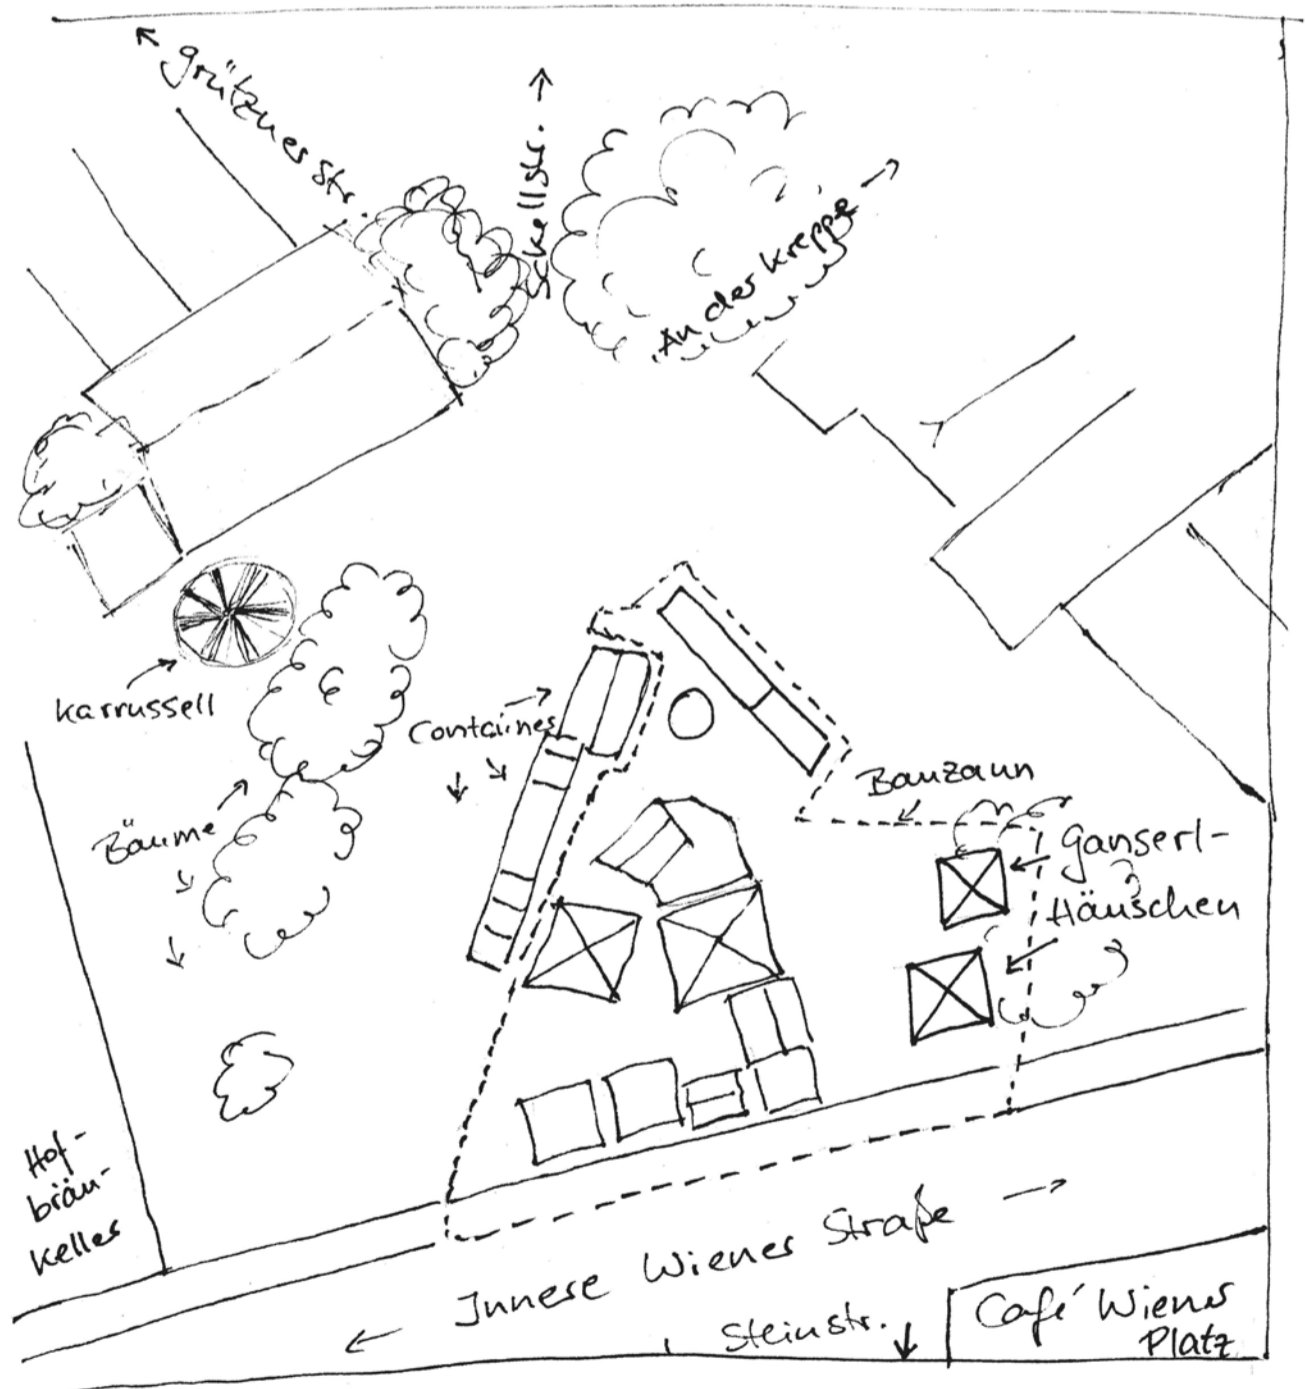 Grütznerstr.
Sckellstr.
An der Kreppe
Karrussell
Container
Bäume
Bauzaun
Ganserl-
Häuschen
Hof-
bräu-
keller
Innere Wiener Straße
Steinstr.
Café Wiener
Platz